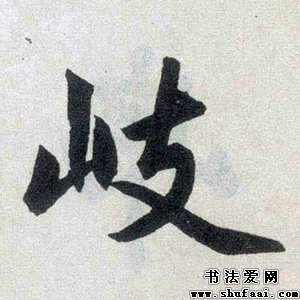 岐
书法爱网
www.shufaai.com